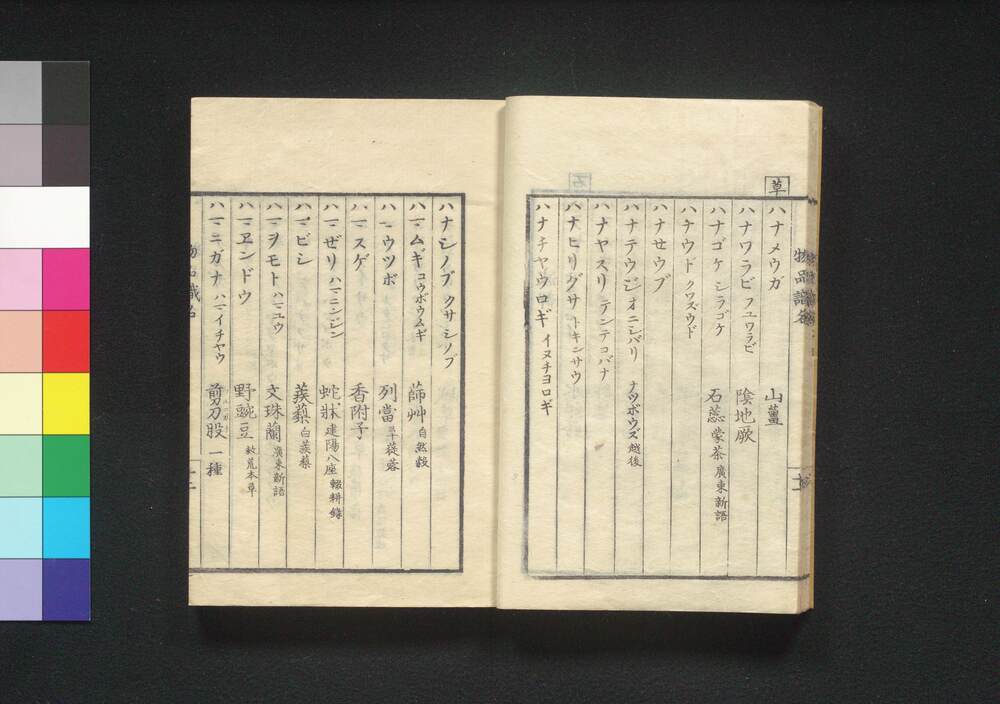 草
ハナメウガ 山薑
ハナワラビ フユワラビ 陰地厥
ハナゴケ シラゴケ 石蕊 蒙茶 廣東新語
ハナウド クワズウド
ハナせウブ
ハナテウジ オニシバリ ナツボウズ 越後
ハナヤスリ テンテコバナ
ハナヒリグサ トキンサウ
ハナチヤウロギ イヌチヨロギ
物品識名
ハナシノブ クサシノブ
ハマムギ コウボウムギ 蒒艸 自然穀
ハマウツボ 列當 草蓯蓉
ハマスゲ 香附子
ハマぜリ ハマニンジン 蛇牀 建陽八座 輟耕錄
ハマビシ 蒺蔾 白蒺蔾
ハマヲモト ハマユウ 文珠蘭 廣東新語
ハマヱンドウ 野豌豆 救荒本草
ハマニガナ ハマイチヤウ 剪刀股 一種
物品識名